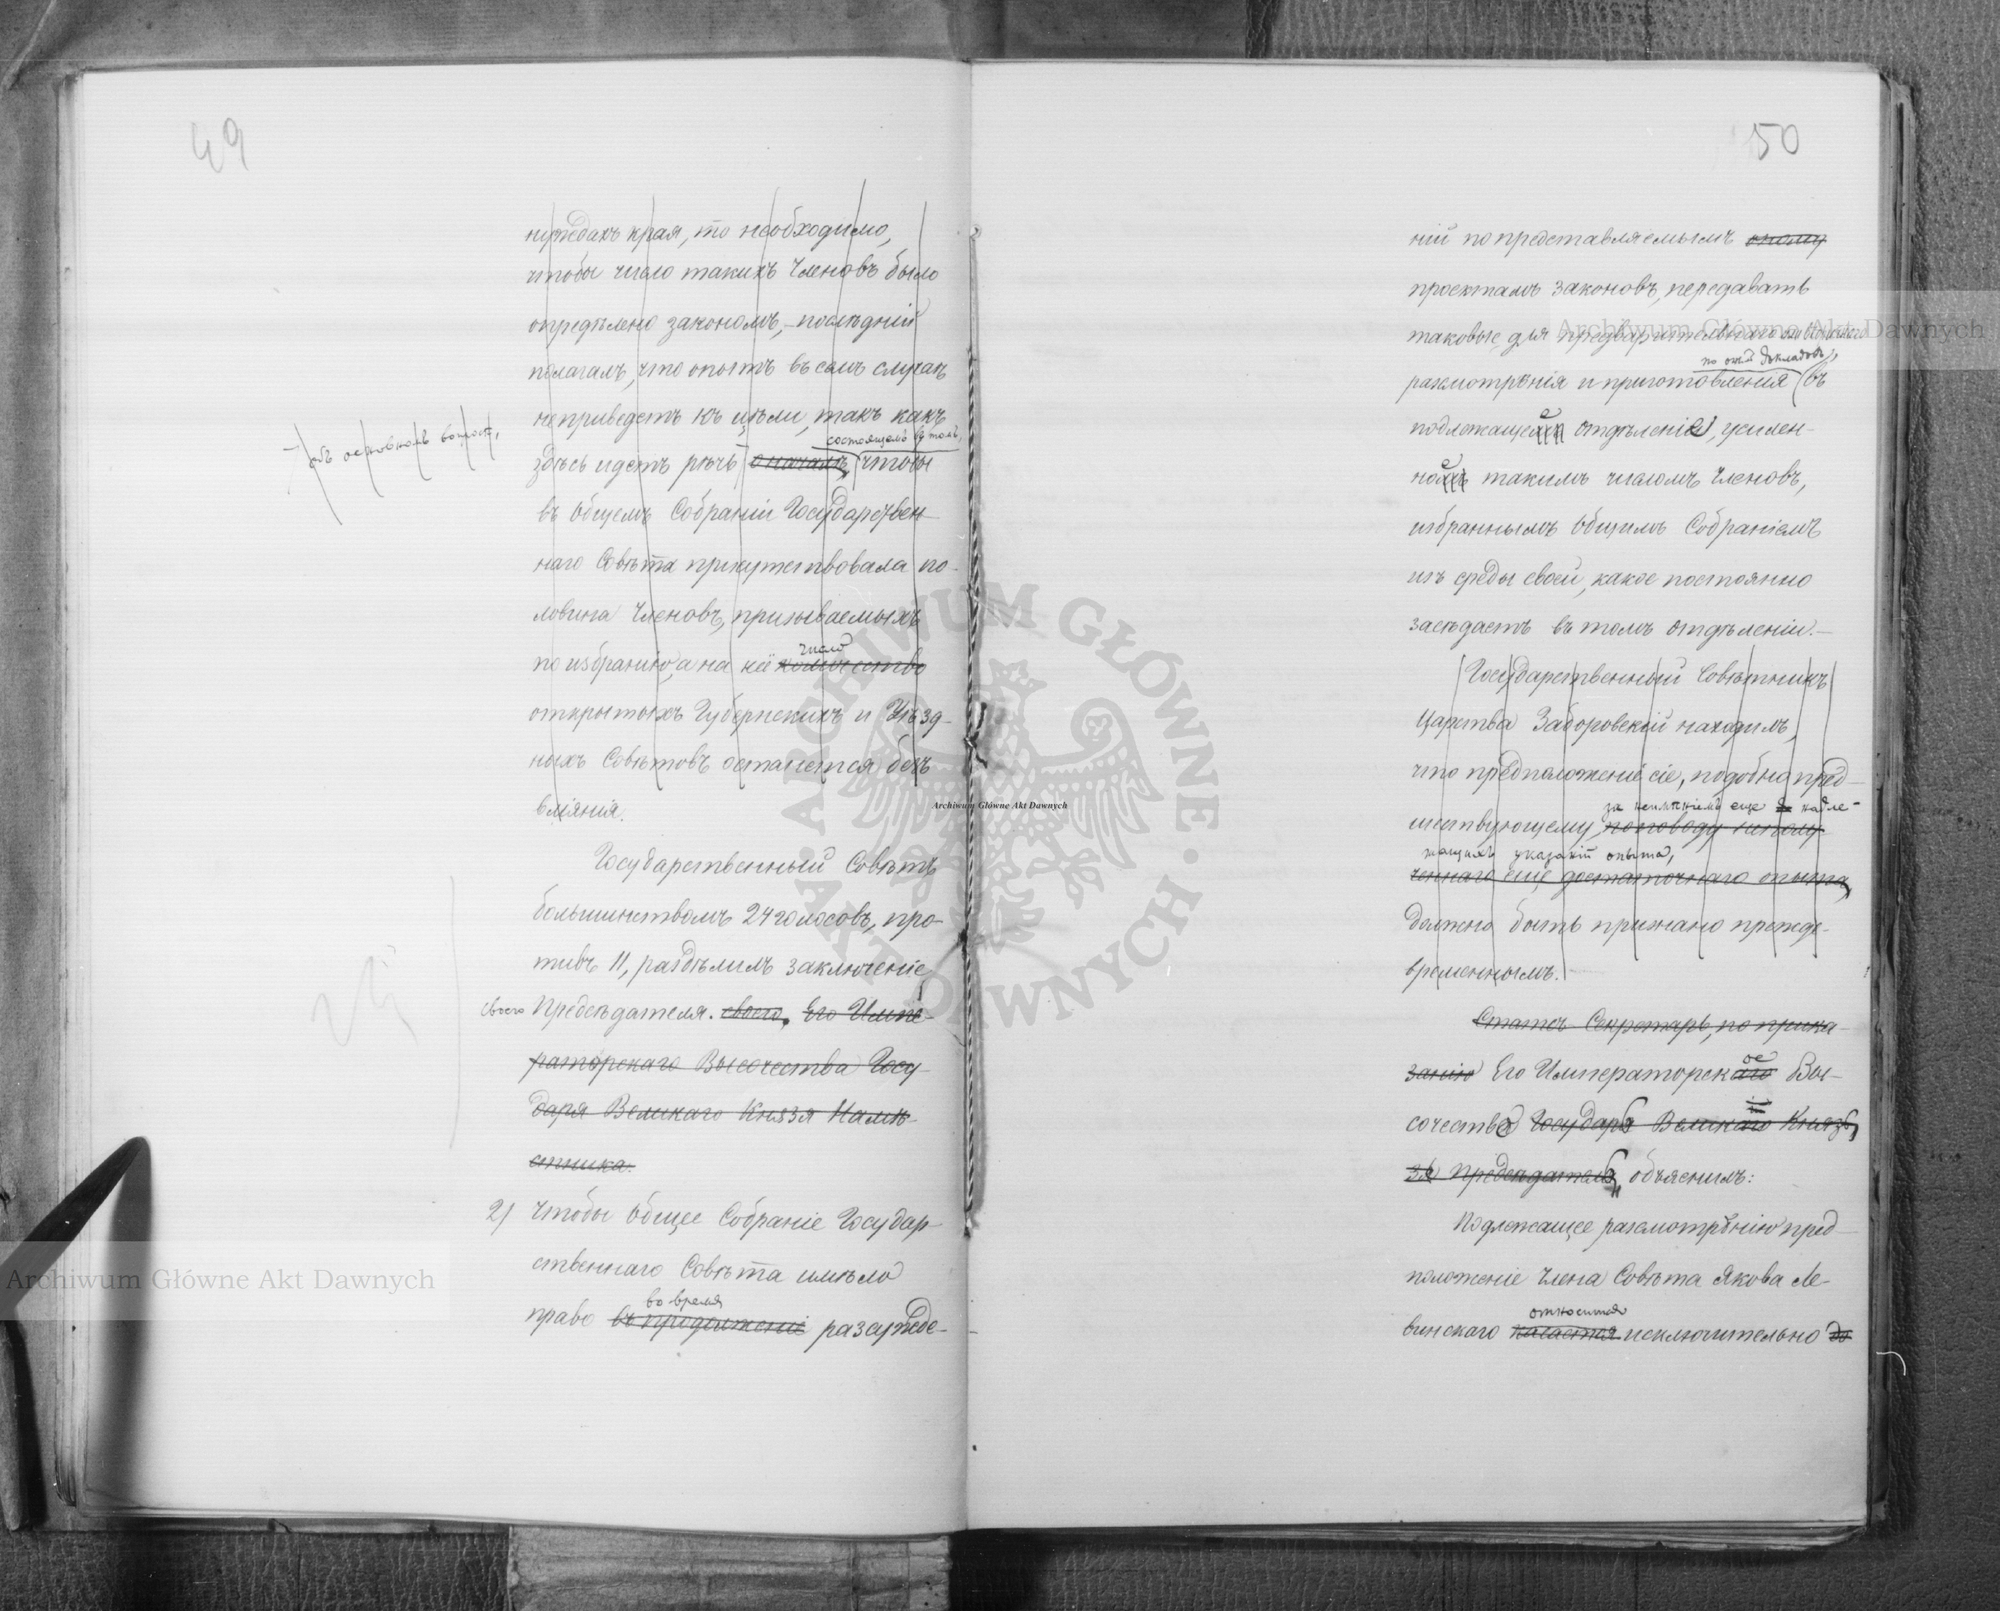 49
нуждахъ края, то необходимо,
чтобы число такихъ Членовъ было
опредѣлено закономъ, – послѣдній
полагалъ, что опытъ въ семъ случаѣ
не приведетъ къ цѣли, такъ какъ
состоящемъ въ томъ,
объ основномъ вопросѣ,
здѣсь идетъ рѣчь о началѣ, чтобы
въ Общемъ Собраніи Государствен-
наго Совѣта присутствовала по-
ловина Членовъ, призываемыхъ
число
по избранію, а на нее количество
открытыхъ Губернскихъ и Уѣзд-
ныхъ Совѣтовъ останется безъ
вліянія.
Государственный Совѣтъ
большинствомъ 24 голосовъ, про-
тивъ 11, раздѣлилъ заключеніе
своего Предсѣдателя. своего, Его Импе-
раторскаго Высочества Госу-
даря Великаго Князя Намѣ-
стника.
2) Чтобы Общее Собраніе Государ-
ственнаго Совѣта имѣло
во время
право въ продолженіе разсужде-
50
ній по представляемымъ оному
проектамъ законовъ, передавать
таковые для предварительнаго
по онымъ докладовъ,
разсмотрѣнія и приготовленія въ
подлежащее отдѣленіе, усилен-
ное такимъ числомъ Членовъ,
избраннымъ Общимъ Собраніемъ
изъ среды своей, какое постоянно
засѣдаетъ въ томъ отдѣленіи. –
Государственный Совѣтникъ
Царства Заборовскій находилъ,
что предположеніе сіе, подобно пред-
за неимѣніемъ еще надле-
шествующему,
жащихъ указаній опыта,
ченнаго еще достаточнаго опыта,
должно быть признано прежде-
временнымъ. –
Статсъ Секретарь, по прика-
ое
занію Его Императорскаго Вы-
сочество Государь Великій Князь,
Предсѣдатель, объяснилъ:
Подлежащее разсмотрѣнію пред-
положеніе Члена Совѣта Якова Ле-
относится
винскаго касается исключительно до
Archiwum Główne Akt Dawnych
Archiwum Główne Akt Dawnych
Archiwum Główne Akt Dawnych
ARCHIWUM GŁÓWNE AKT DAWNYCH